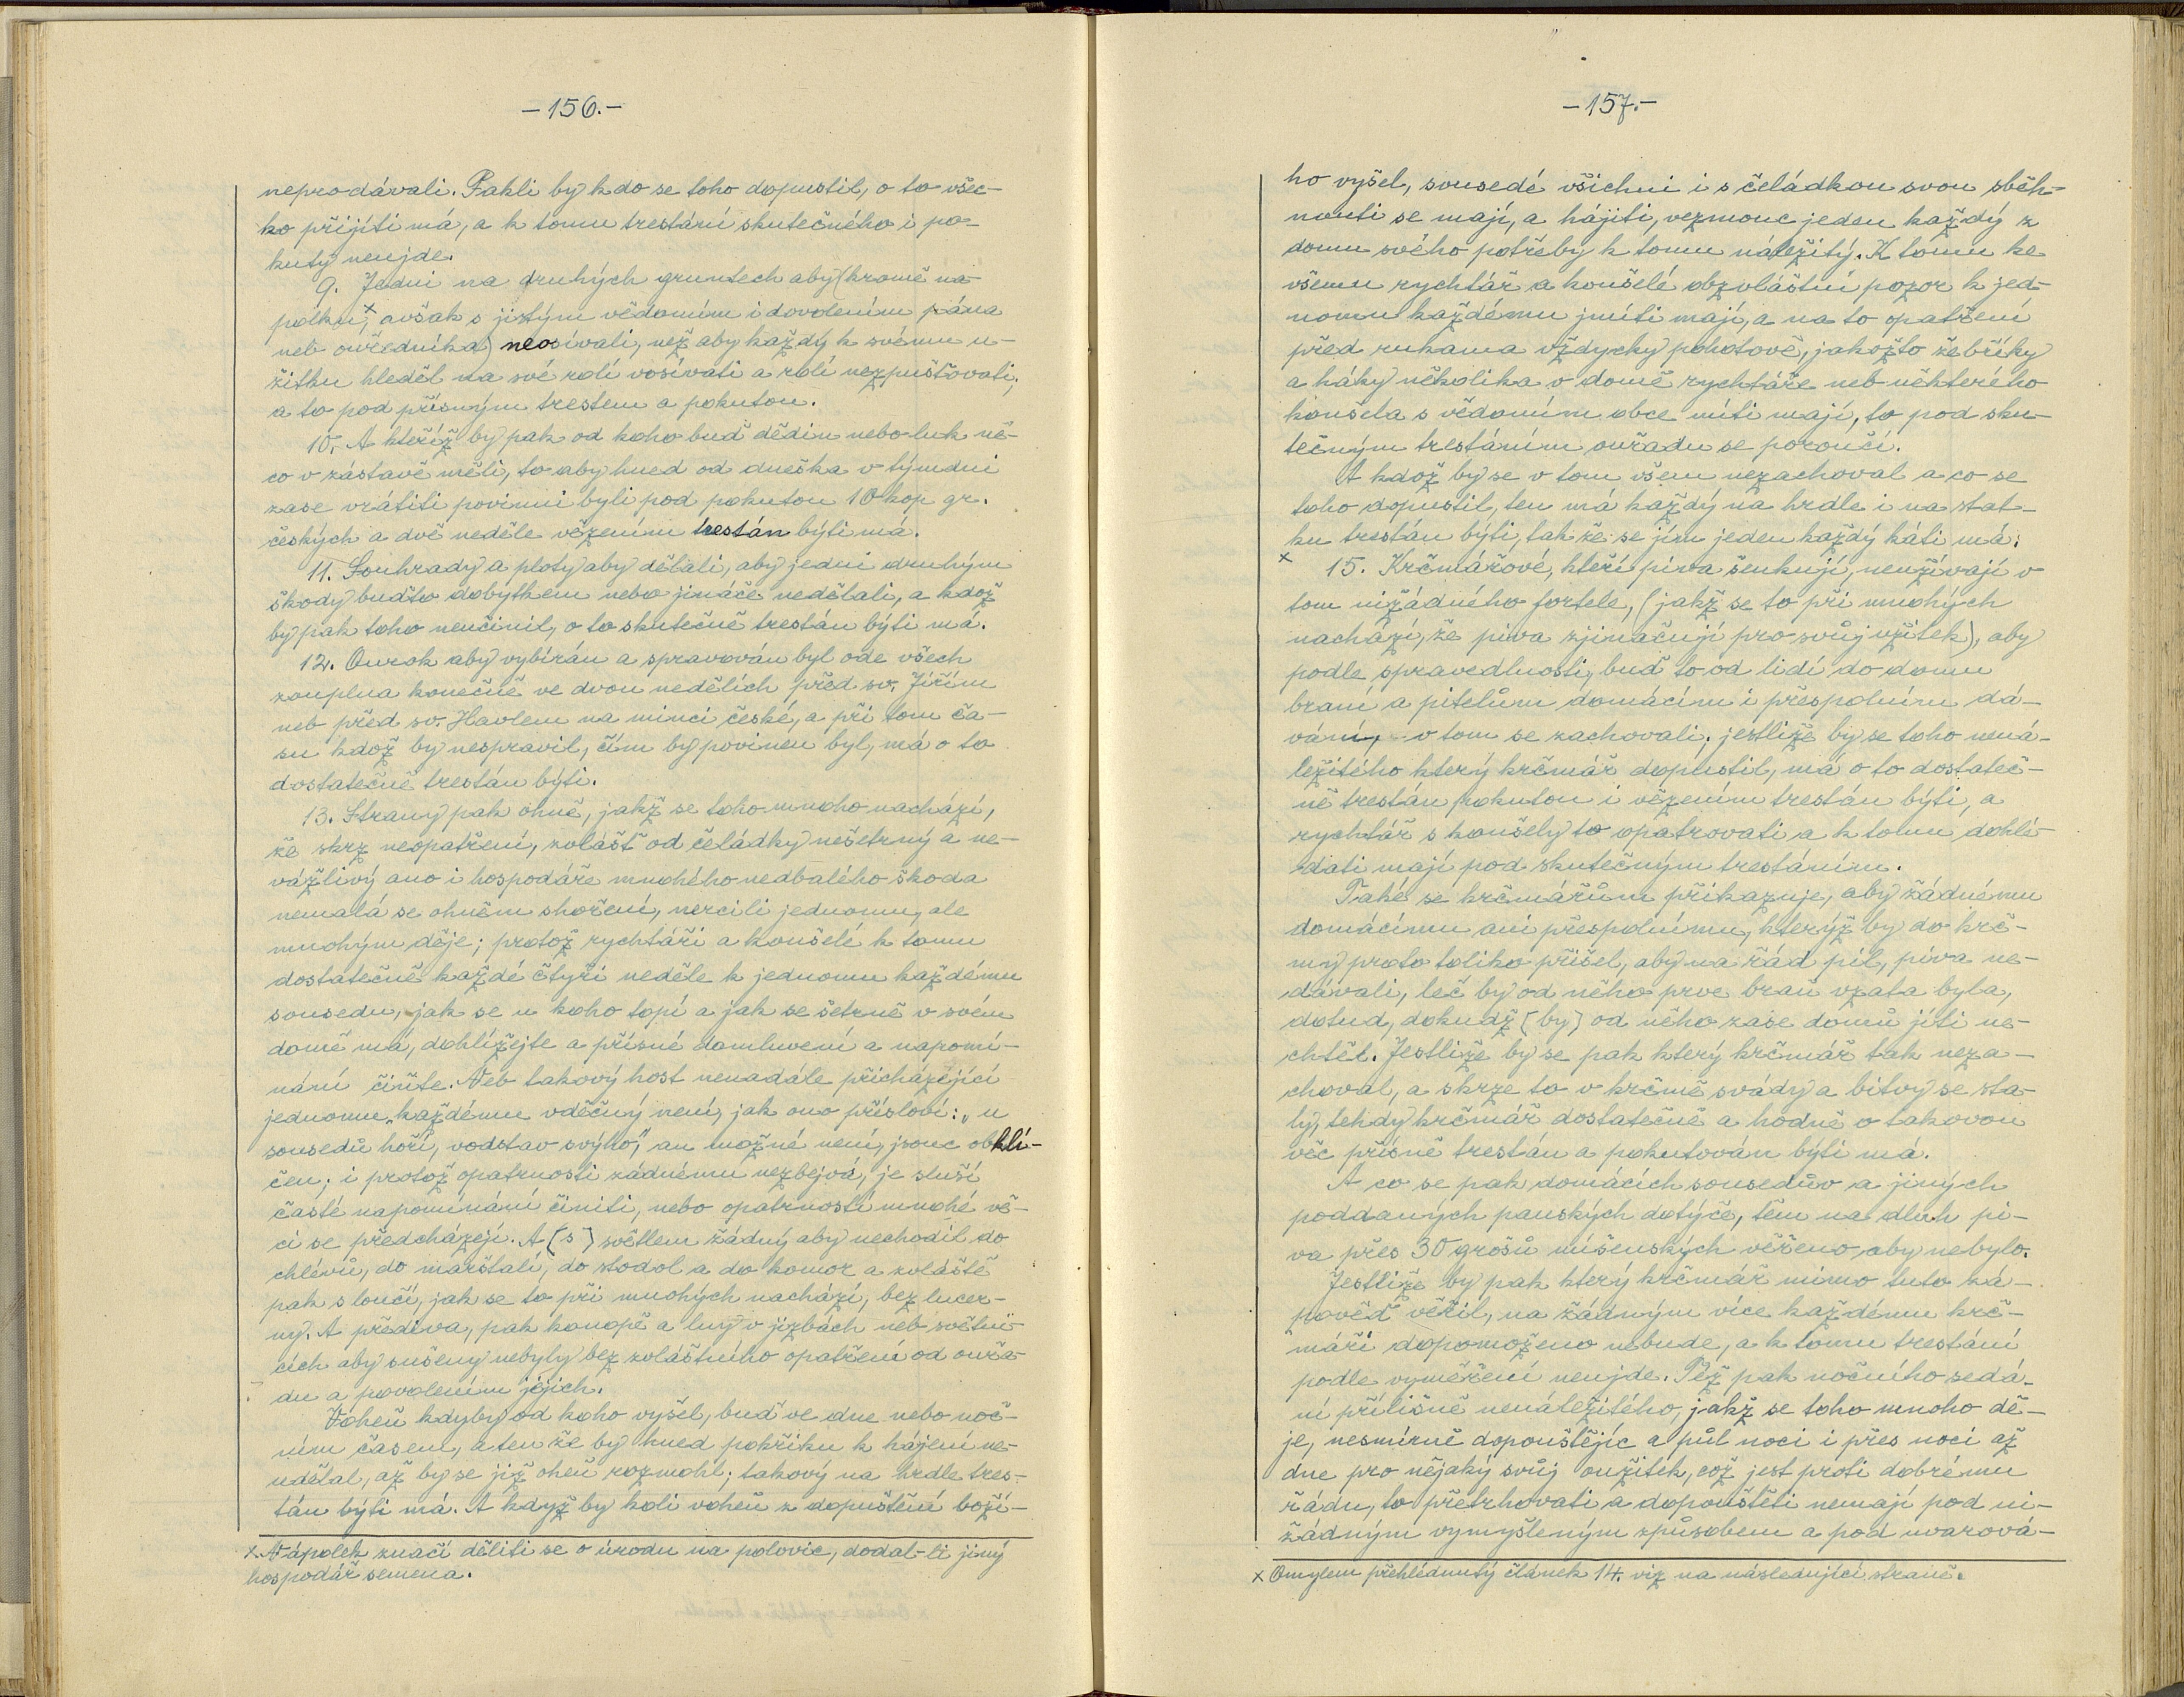 -156.-
neprodávali. Pakli by kdo se toho dopustil, o to všec-
ko přijíti má, a k tomu trestání skutečného i po-
kuty neujde.
9. Jedni na druhých gruntech aby (kromě na-
polku,x avšak s jistým vědomím i dovolením pána
neb ouředníka) neosívali, než aby každý k svému u-
žitku hleděl na své rolí vosívati a rolí nezpušťovati,
a to pod přísným trestem a pokutou.
10. A kteříž by pak od koho buď dědin nebo luk ně-
co v zástavě měli, to aby hned od dneška v týmdni
zase vrátiti povinni byli pod pokutou 10 kop gr.
českých a dvě neděle vězením trestán býti má.
11. Souhrady a ploty aby dělali, aby jedni druhým
škody buďto dobytkem nebo jináče nedělali, a kdož
by pak toho neučinil, o to skutečně trestán býti má.
12. Ourok aby vybírán a spravován byl ode všech
zouplna konečně ve dvou nedělích před sv. Jiřím
neb před sv. Havlem na minci české, a při tom ča-
su kdož by nespravil, čím by povinen byl, má o to
dostatečně trestán býti.
13. Strany pak ohně, jakž se toho mnoho nachází,
že skrz neopatření, zvlášť od čeládky nešetrný a ne-
vážlivý ano i hospodáře mnohého nedbalého škoda
nemalá se ohněm shoření, nercili jednomu, ale
mnohým děje; protož rychtáři a konšelé k tomu
dostatečně každé čtyři neděle k jednomu každému
sousedu, jak se u koho topí a jak se šetrně v svém
domě má, dohlížejte a přísné domluvení a napomí-
nání čiňte. Neb takový host nenadále přicházející
jednomu každému vděčný není, jak ono přísloví: „u
sousedů hoří, vodstav svýho," an možné není, jsouc obklí-
čen; i protož opatrnosti žádnému nezbejvá, je sluší
časté napomínání činiti, nebo opatrností mnohé vě-
ci se předcházejí. A (s) světlem žádný aby nechodil do
chlévů, do marštalí, do stodol a do komor a zvláště
pak s loučí, jak se to při mnohých nachází, bez lucer-
ny. A přediva, pak konopě a lny v jizbách neb světni-
cích aby sušeny nebyly bez zvláštního opatření od ouřa-
du a povolením jejich.
Voheň kdyby od koho vyšel, buď ve dne nebo noč-
ním časem, a ten že by hned pokřiku k hájení ne-
udělal, až by se již oheň rozmohl; takový na hrdle tres-
tán býti má. A když by koli voheň z dopuštění boží-
x Nápolek značí děliti se o úrodu na polovic, dodal-li jiný
hospodář semena.
-157.-
ho vyšel, sousedé všichni i s čeládkou svou sběh-
nouti se mají, a hájiti, vezmouc jeden každý z
domu svého potřeby k tomu náležitý. K tomu ke
všemu rychtář a konšelé obzvláštní pozor k jed-
nomu každému jmíti mají, a na to opatření
před rukama vždycky pohotově, jakožto žebříky
a háky několika v domě rychtáře neb některého
konšela s vědomím obce míti mají, to pod sku-
tečným trestáním ouřadu se poroučí.
A kdož by se v tom všem nezachoval a co se
toho dopustil, ten má každý na hrdle i na stat-
ku trestán býti, tak že se jím jeden každý káti má.
x 15. Krčmářové, kteří piva šenkují, neužívají v
tom nižádného fortele, (jakž se to při mnohých
nachází, že piva zjinačují pro svůj užitek), aby
podle spravedlnosti, buď to od lidí do domu
braní a pitelům domácím i přespolním dá-
vání, v tom se zachovali; jestliže by se toho nená-
ležitého který krčmář dopustil, má o to dostateč-
ně trestán pokutou i vězením trestán býti, a
rychtář s konšely to opatrovati a k tomu dohlí-
dati mají pod skutečným trestáním.
Také se krčmářům přikazuje, aby žádnému
domácímu ani přespolnímu, kterýž by do krč-
my proto toliko přišel, aby na řád pil, piva ne-
dávali, leč by od něho prve braň vzata byla,
dotud, dokudž (by) od něho zase domů jíti ne-
chtěl. Jestliže by se pak který krčmář tak neza-
choval, a skrze to v krčmě svády a bitvy se sta-
ly, tehdy krčmář dostatečně a hodně o takovou
věc přísně trestán a pokutován býti má.
A co se pak domácích sousedův a jiných
poddaných panských dotýče, těm na dluh pi-
va přes 30 grošů míšenských věřeno aby nebylo.
Jestliže by pak který krčmář mimo tuto zá-
pověď věřil, na žádným více každému krč-
máři dopomoženo nebude, a k tomu trestání
podle vyměření neujde. Též pak nočního sedá-
ní přílišně nenáležitého, jakž se toho mnoho dě-
je, nesmírně dopouštějíc a půl noci i přes noci až
dne pro nějaký svůj oužitek, což jest proti dobrému
řádu, to přetrhovati a dopouštěti nemají pod ni-
žádným vymyšleným způsobem a pod uvarová-
x Omylem přehlédnutý článek 14. viz na následující straně.